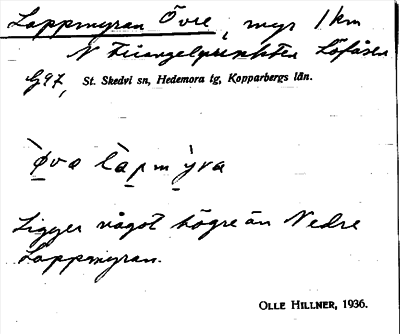 Lappmyran Övre, myr 1 km
N Triangelpunkten Löfåsen
G97, St. Skedvi sn, Hedemora tg, Kopparbergs län.
Ligger något högre än Nedre
Lappmyran.
OLLE HILLNER, 1936.